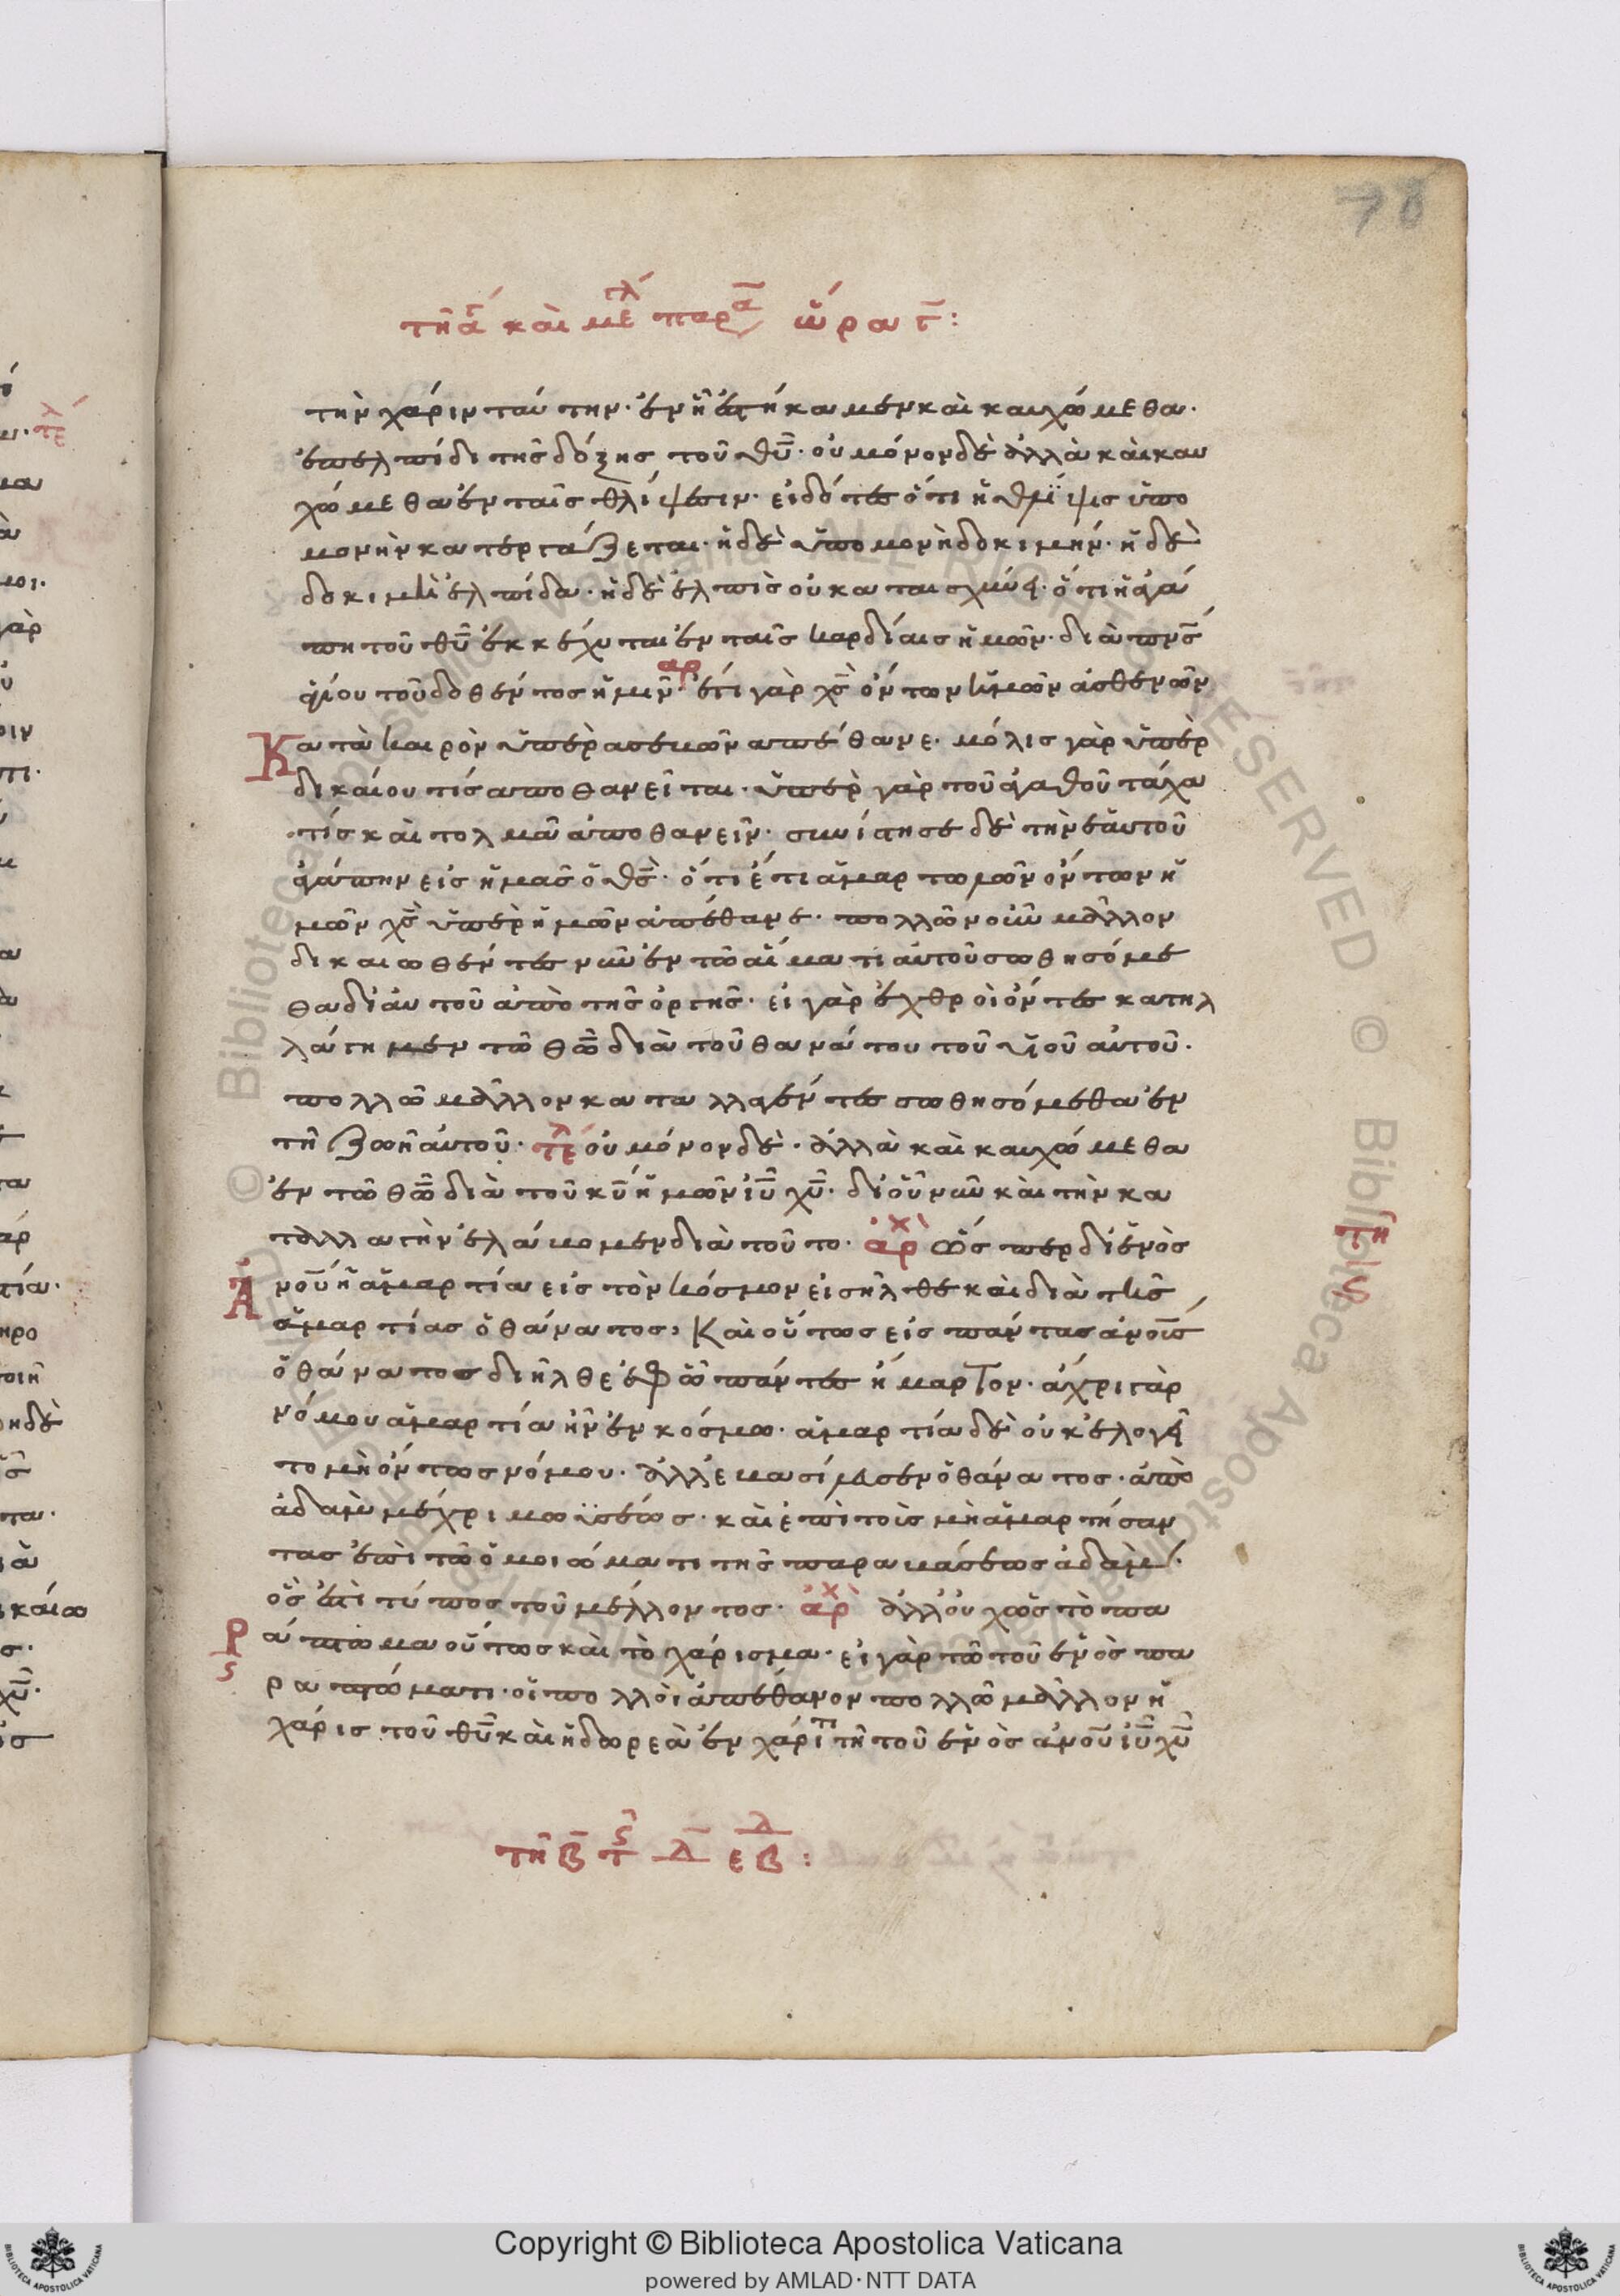 78
τῆ α καὶ με παρα ὥρα γ:
τὴν χάριν ταύτην· ἐν ἧ ἑστήκαμεν καὶ καυχώμεθα·
ἐπ ἐλπίδι τῆς δόξης τοῦ θυ· οὐ μόνον δὲ ἀλλὰ καὶ καυ
χώμεθα ἐν ταῖς θλίψεσιν· εἰδότες ὅτι ἡ θλίψις ὑπο
μονὴν κατεργάζεται· ἡ δὲ ὑπομονὴ δοκιμήν· ἡ δὲ
δοκιμὴ ἐλπίδα· ἡ δὲ ἐλπὶς οὐ καταισχύνει· ὅτι ἡ ἀγά
πη τοῦ θυ ἐκκέχυται ἐν ταῖς καρδίαις ἡμῶν· διὰ πνς
ἁγίου τοῦ δοθέντος ἡμῖν· αρ ἔτι γὰρ χς ὄντων ἡμῶν ἀσθενῶν
Κατὰ καιρὸν ὑπὲρ ασεβῶν απέθανε· μόλις γὰρ ὑπὲρ
δικαίου τίς αποθανεῖται· ὑπὲρ γὰρ τοῦ ἀγαθοῦ τάχα
τίς καὶ τολμᾶ ἀποθανεῖν· συνίστησε δὲ τὴν ἑαυτοῦ
ἀγάπην εἰς ἡμᾶς ὁ θς· ὅτι ἔτι ἁμαρτωλῶν ὄντων ἡ
μῶν χς ὑπὲρ ἡμῶν ἀπέθανε· πολλῶ νοῦν μᾶλλον
δικαιωθέντες νῦν ἐν τῶ αἵματι αὐτοῦ σωθησόμε
θα δι αυτοῦ ἀπὸ τῆς ὀργῆς· εἰ γὰρ ἐχθροὶ ὄντες κατηλ
λάγημεν τῶ θῶ διὰ τοῦ θανάτου τοῦ υἱοῦ αὐτοῦ·
πολλῶ μᾶλλον καταλλαγέντες σωθησόμεθα ἐν
τῆ ζωῆ αὐτοῦ· τε οὐ μόνον δὲ· ἀλλὰ καὶ καυχώμεθα
ἐν τῶ θῶ διὰ τοῦ κυ ἡμῶν ιυ χυ· δι οὗ νῦν καὶ τὴν κα
ταλλαγὴν ἐλάβομεν διὰ τοῦτο· αρχ ὥσπερ δι ἑνὸς
Ἀνου ἡ ἁμαρτία εἰς τὸν κόσμον εἰσῆλθε καὶ διὰ τῆς
τῆ ς
ἁμαρτίας ὁ θάνατος, Καὶ οὕτως εἰς πάντας ἀνους
ὁ θάνατος διῆλθε ἐφ ὧ πάντες ἥμαρτον· ἄχρι γὰρ
νόμου ἁμαρτία ἦν ἐν κόσμω· ἁμαρτία δὲ οὐκ ἐλογεῖ
το μὴ ὄντως νόμου· ἀλλ ἐβασίλευσεν ὁ θάνατος· ἀπὸ
ἀδὰμ μέχρι μωϋσέως· καὶ ἐπὶ τοὺς μὴ ἁμαρτήσαν
τας ἐπὶ τῶ ὁμοιώματι τῆς παραβάσεως ἀδάμ·
ὅς ἐστὶ τύπος τοῦ μέλλοντος· αρχ ἀλλ οὐχ ὡς τὸ πα
ράπτωμα οὕτως καὶ τὸ χάρισμα· εἰ γὰρ τῶ τοῦ ἑνὸς πα
ραπτώματι· οἱ πολλοὶ ἀπέθανον πολλῶ μᾶλλον ἡ
χάρις τοῦ θυ καὶ ἡ δωρεὰ ἐν χάριτι τῆ τοῦ ἑνὸς ἀνου ιυ χυ
τῆ β τ ς λ ε β λ:
Copyright © Biblioteca Apostolica Vaticana
powered by AMLAD·NTT DATA